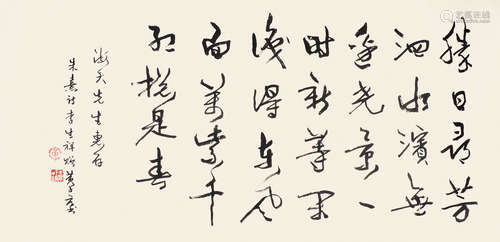 勝日尋芳
泗水濱無
邊光景一
時新等閑
識得東風
面萬紫千
紅總是春
先生惠存
朱熹詩李生祥